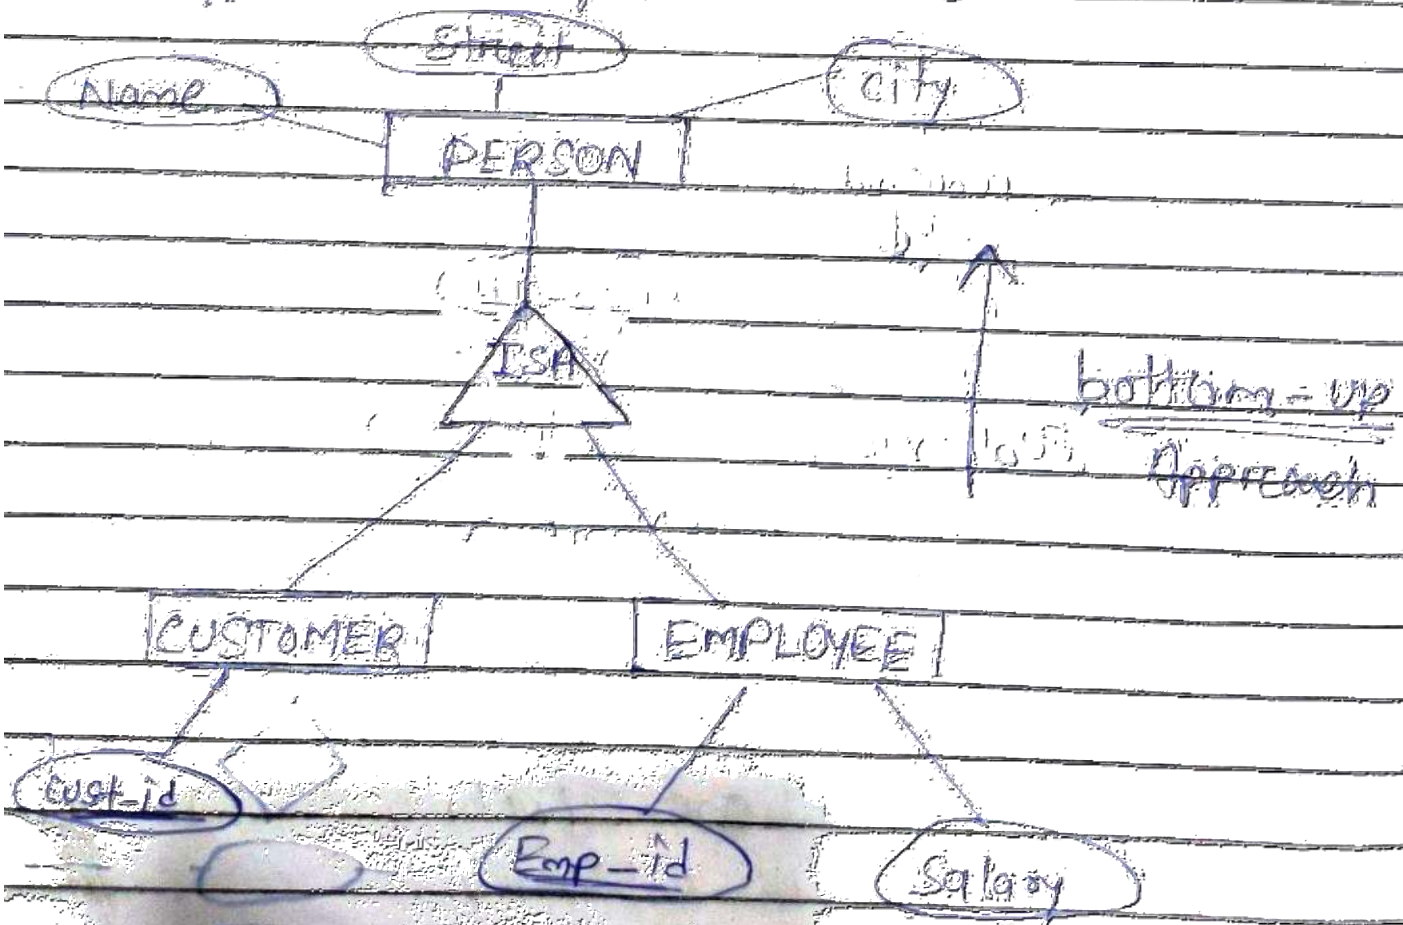 Street
Name
City
PERSON
ISA
bottom-up
Approach
CUSTOMER
EMPLOYEE
Cust_id
Emp_id
Salary